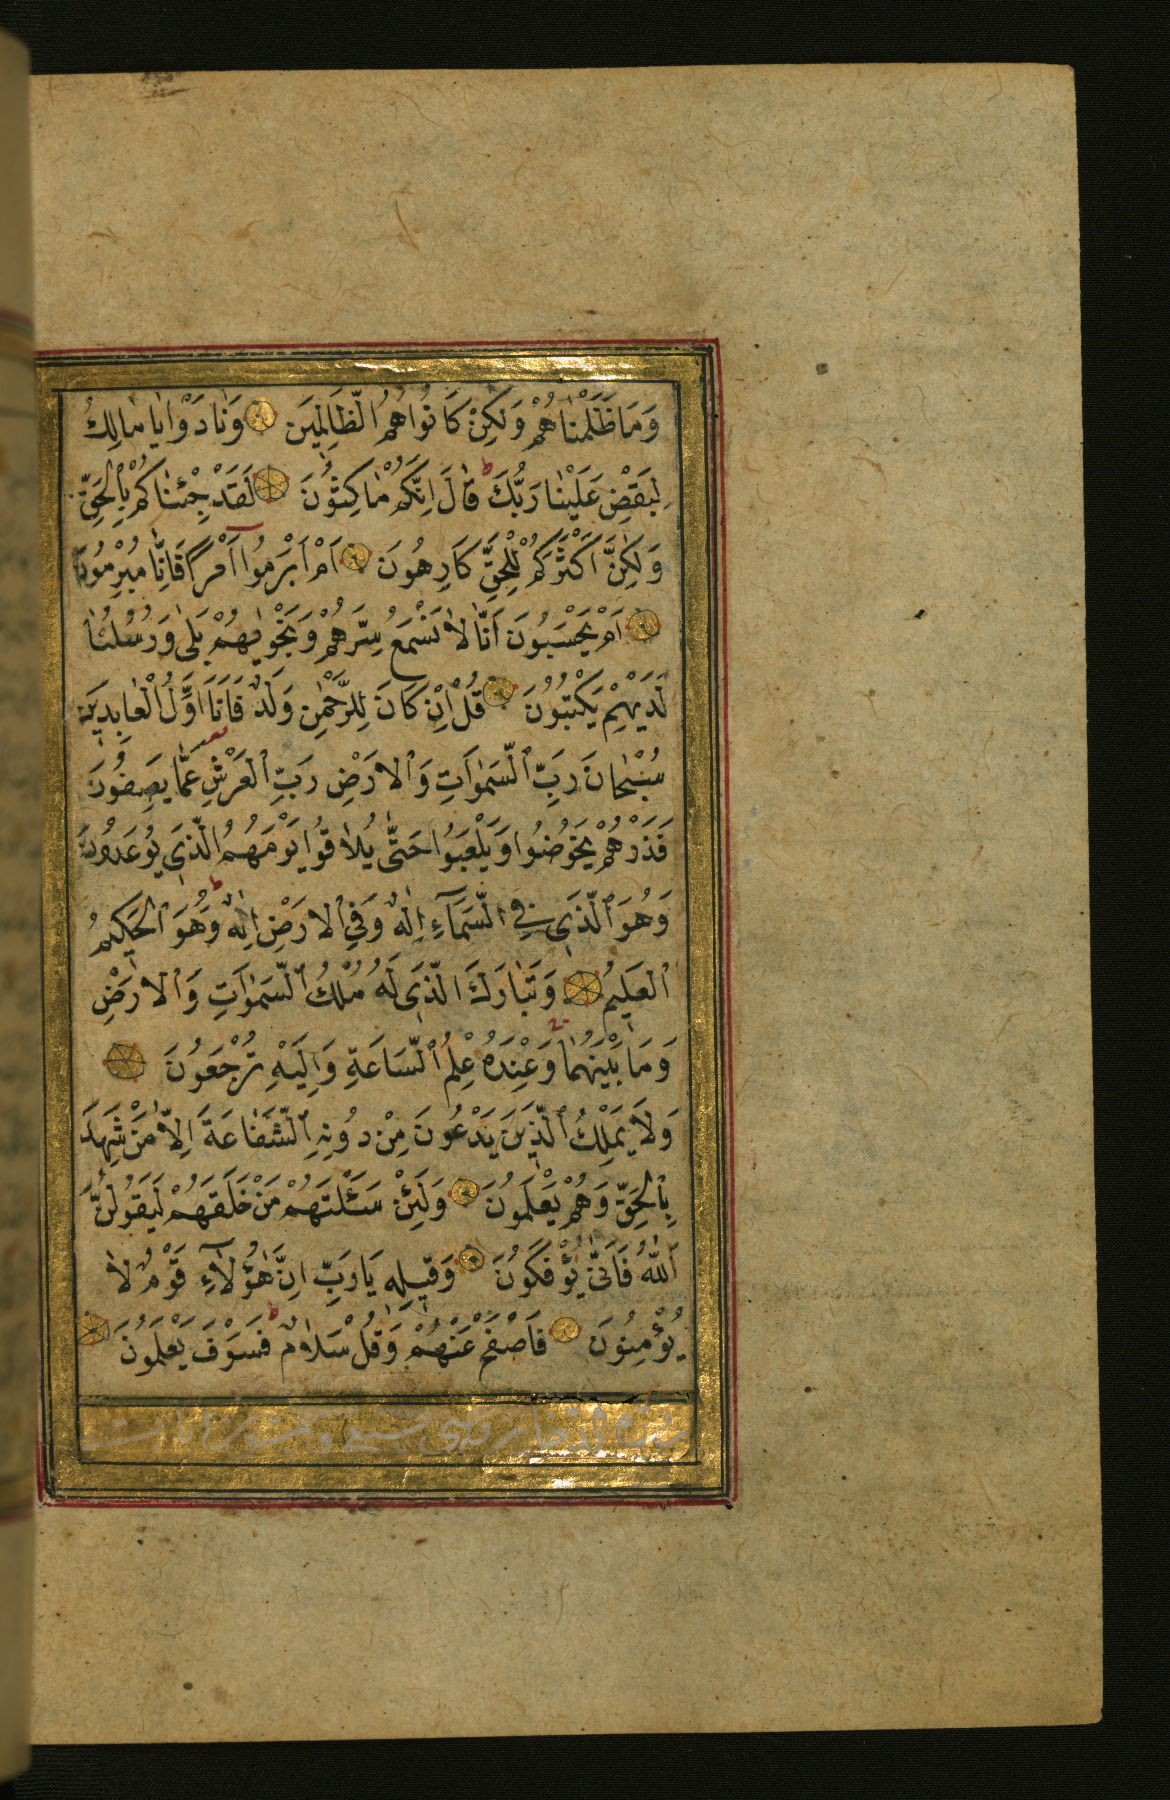 وَمَا ظَلَمْنَاهُمْ وَلٰكِنْ كَانُوا هُمُ الظَّالِمِينَ وَنَادَوْا يَا مَالِكُ
لِيَقْضِ عَلَيْنَا رَبُّكَ قَالَ اِنَّكُمْ مَاكِثُونَ لَقَدْ جِئْنَاكُمْ بِالْحَقِّ
وَلٰكِنَّ اَكْثَرَكُمْ لِلْحَقِّ كَارِهُونَ اَمْ اَبْرَمُوا اَمْرًا فَاِنَّا مُبْرِمُونَ
اَمْ يَحْسَبُونَ اَنَّا لَا نَسْمَعُ سِرَّهُمْ وَنَجْوٰيهُمْ بَلٰى وَرُسُلُنَا
لَدَيْهِمْ يَكْتُبُونَ قُلْ اِنْ كَانَ لِلرَّحْمٰنِ وَلَدٌ فَاَنَا اَوَّلُ الْعَابِدِينَ
سُبْحَانَ رَبِّ السَّمٰوَاتِ وَالْاَرْضِ رَبِّ الْعَرْشِ عَمَّا يَصِفُونَ
فَذَرْهُمْ يَخُوضُوا وَيَلْعَبُوا حَتّٰى يُلَاقُوا يَوْمَهُمُ الَّذِي يُوعَدُونَ
وَهُوَ الَّذِي فِي السَّمَآءِ اِلٰهٌ وَفِي الْاَرْضِ اِلٰهٌ وَهُوَ الْحَكِيمُ
الْعَلِيمُ وَتَبَارَكَ الَّذِي لَهُ مُلْكُ السَّمٰوَاتِ وَالْاَرْضِ
وَمَا بَيْنَهُمَا وَعِنْدَهُ عِلْمُ السَّاعَةِ وَاِلَيْهِ تُرْجَعُونَ
وَلَا يَمْلِكُ الَّذِينَ يَدْعُونَ مِنْ دُونِهِ الشَّفَاعَةَ اِلَّا مَنْ شَهِدَ
بِالْحَقِّ وَهُمْ يَعْلَمُونَ وَلَئِنْ سَئَلْتَهُمْ مَنْ خَلَقَهُمْ لَيَقُولُنَّ
اللّٰهُ فَاَنّٰى يُؤْفَكُونَ وَقِيلِهِ يَا رَبِّ اِنَّ هٰؤُلَآءِ قَوْمٌ لَا
يُؤْمِنُونَ فَاصْفَحْ عَنْهُمْ وَقُلْ سَلَامٌ فَسَوْفَ يَعْلَمُونَ